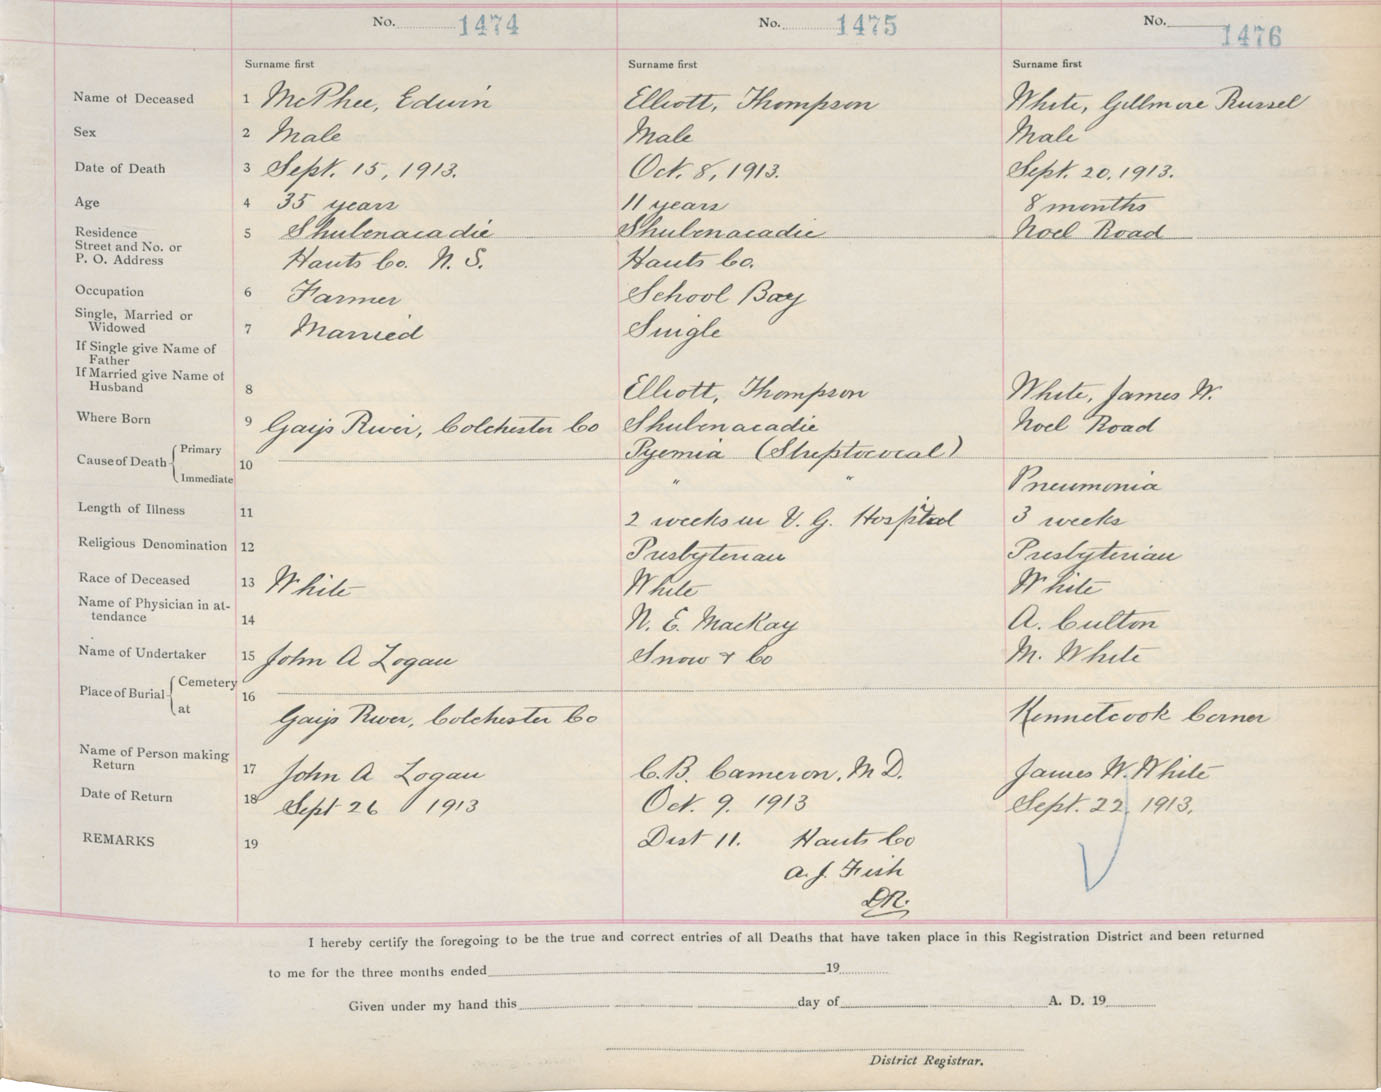 No. 1474 No. 1475 No. 1476
Surname first Surname first Surname first
Name of Deceased 1 McPhee, Edwin Elliott, Thompson White, Gillmore Russel
Sex 2 Male Male Male
Date of Death 3 Sept. 15, 1913. Oct. 8, 1913. Sept. 20, 1913.
Age 4 35 years 11 years 8 months
Residence 5 Shubenacadie Shubenacadie Noel Road
Street and No. or
P. O. Address Hants Co. N. S. Hants Co.
Occupation 6 Farmer School Boy
Single, Married or
Widowed 7 Married Single
If Single give Name of
Father
If Married give Name of
Husband 8 Elliott, Thompson White, James W.
Where Born 9 Gays River, Colchester Co Shubenacadie Noel Road
Cause of Death Primary 10 Pyemia (Streptococal)
Immediate " " Pneumonia
Length of Illness 11 2 weeks in V. G. Hospital 3 weeks
Religious Denomination 12 Presbyterian Presbyterian
Race of Deceased 13 White White White
Name of Physician in at-
tendance 14 N. E. MacKay A. Culton
Name of Undertaker 15 John A Logan Snow & Co M. White
Place of Burial Cemetery 16
at Gays River, Colchester Co Kennetcook Corner
Name of Person making
Return 17 John A Logan C. B. Cameron, M D. James W. White
Date of Return 18 Sept 26 1913 Oct. 9. 1913 Sept. 22. 1913.
REMARKS 19 Dist 11. Hants Co
A. J. Fish
D.R.
I hereby certify the foregoing to be the true and correct entries of all Deaths that have taken place in this Registration District and been returned
to me for the three months ended 19
Given under my hand this day of A. D. 19
District Registrar.